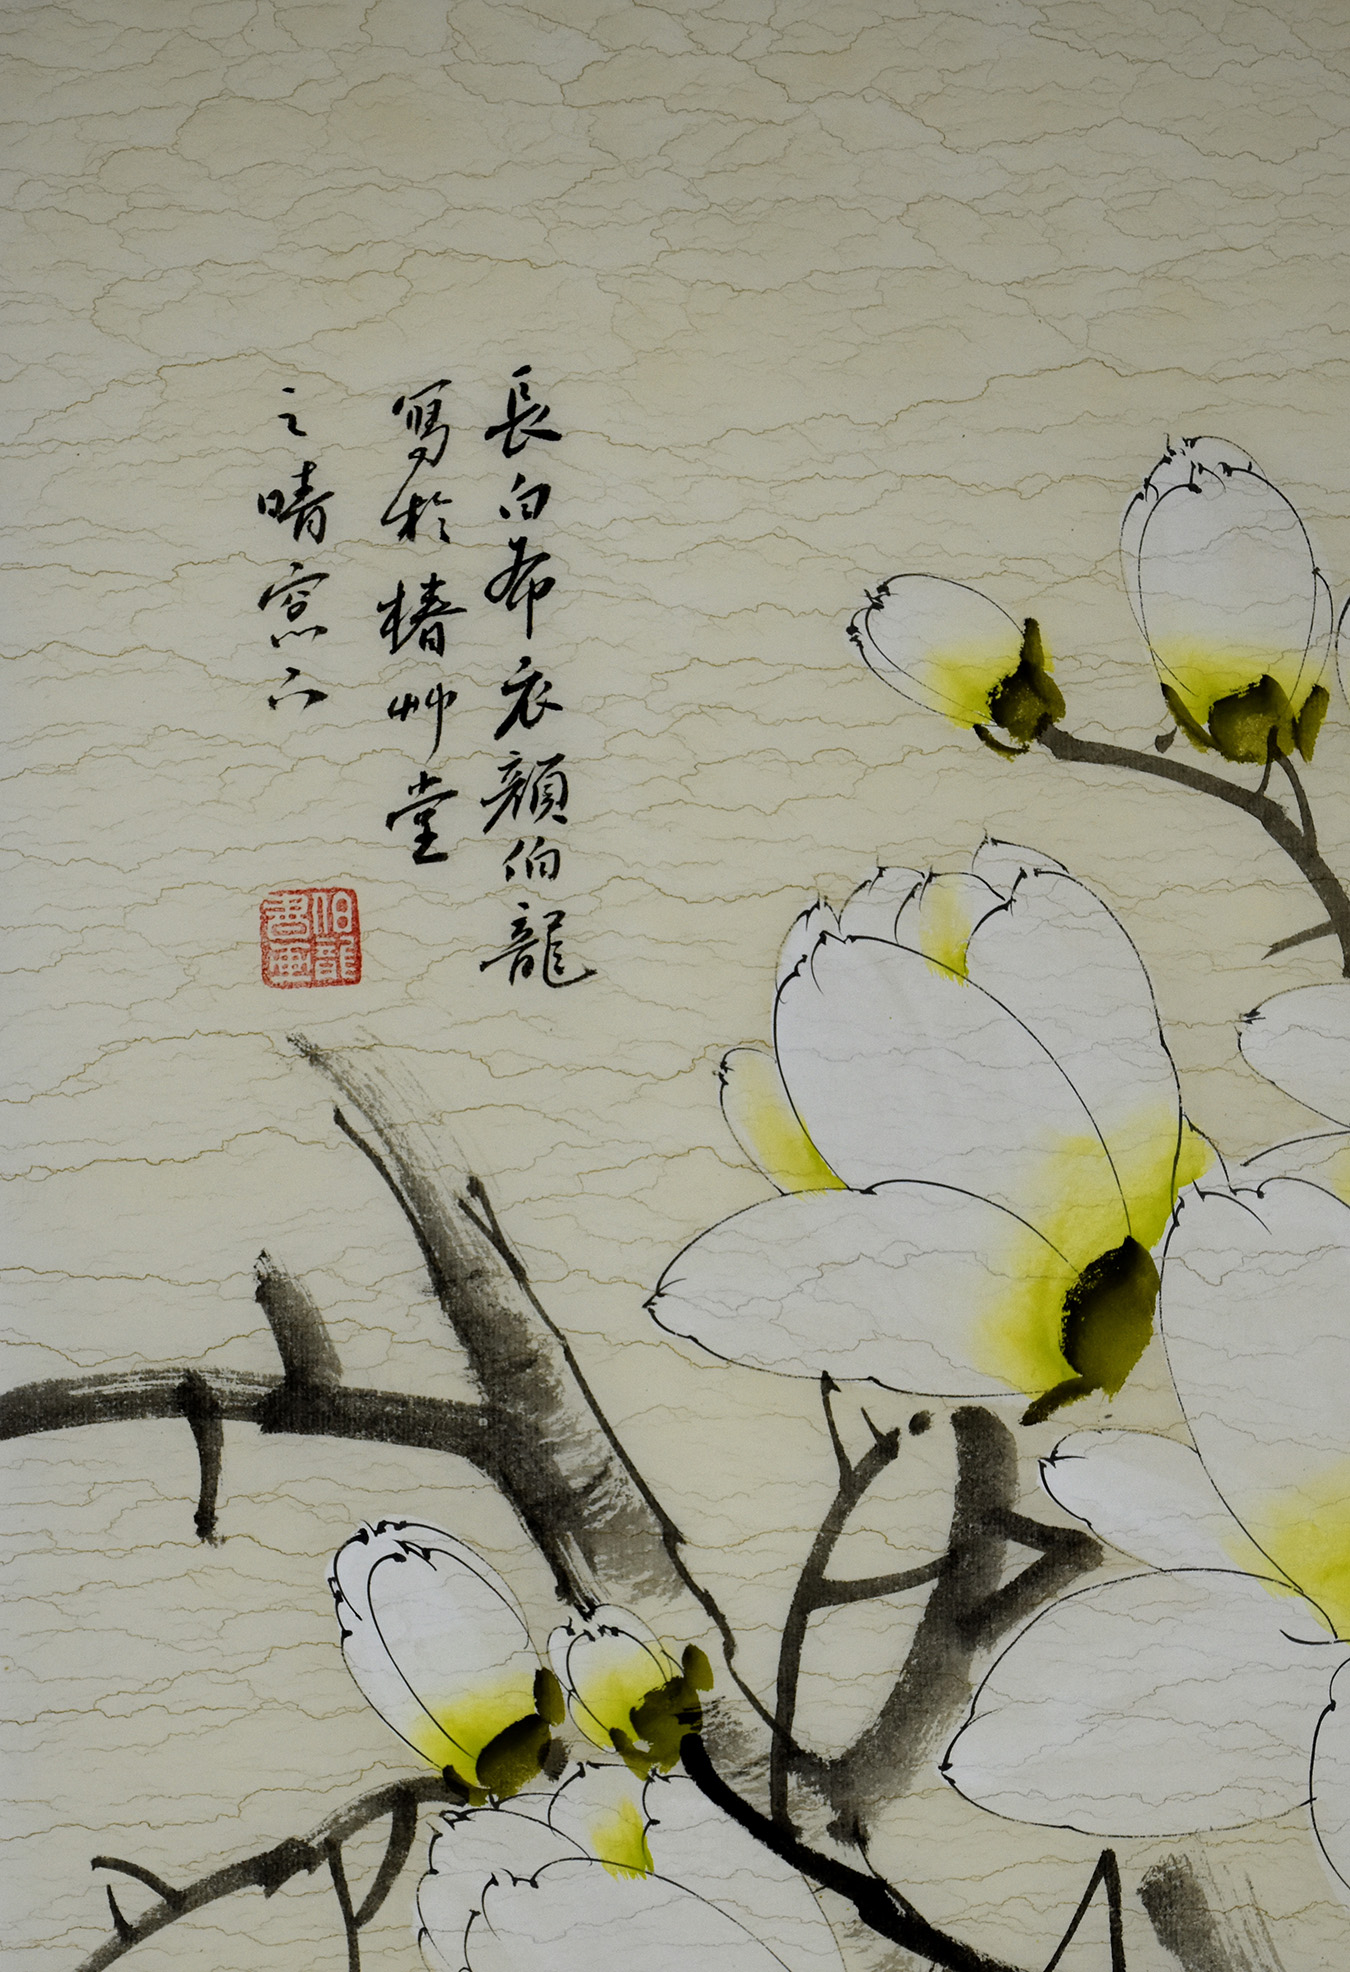 長白布衣顏伯龍
寫於椿艸堂
之晴窓下
伯龍
書畫